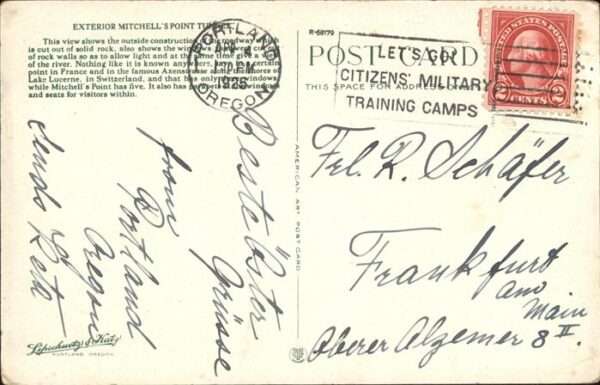 EXTERIOR MITCHELL'S POINT TUNNEL
This view shows the outside construction of the roadway which
is cut out of solid rock, also shows the windows
of rock walls so as to allow light and at the same time
of the river. Nothing like it is known anywhere,
point in France and in the famous Axenstrasse along the shores of
Lake Lucerne, in Switzerland, and that is the only three windows
while Mitchell's Point has five. It also has parapets windows
and seats for visitors within.
PORTLAND
OREGON
R-68179
POST CARD
THIS SPACE FOR ADDRESS ONLY
LET'S GO!
CITIZENS' MILITARY
TRAINING CAMPS
UNITED STATES POSTAGE
2 CENTS 2
Beste
Grüsse
from
Portland
Oregon
AMERICAN ART POST CARD
Frl. R. Schäfer
Frankfurt
am
Main
Oberer Algemer 8 II.
Lipschuetz & Katz
PORTLAND, OREGON